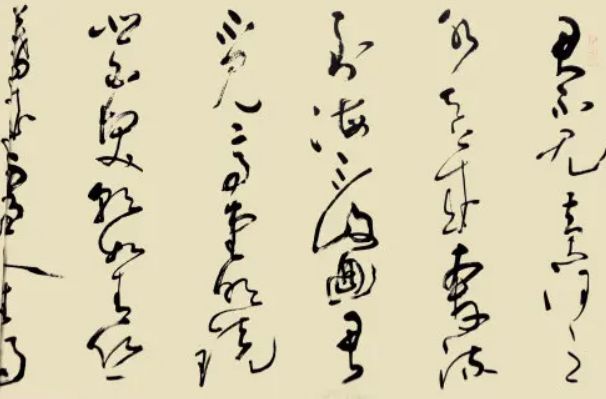 君不见黄河之
水天上来奔流
到海不复回君
不见高堂明镜
悲白发朝如青丝
暮成雪人生得